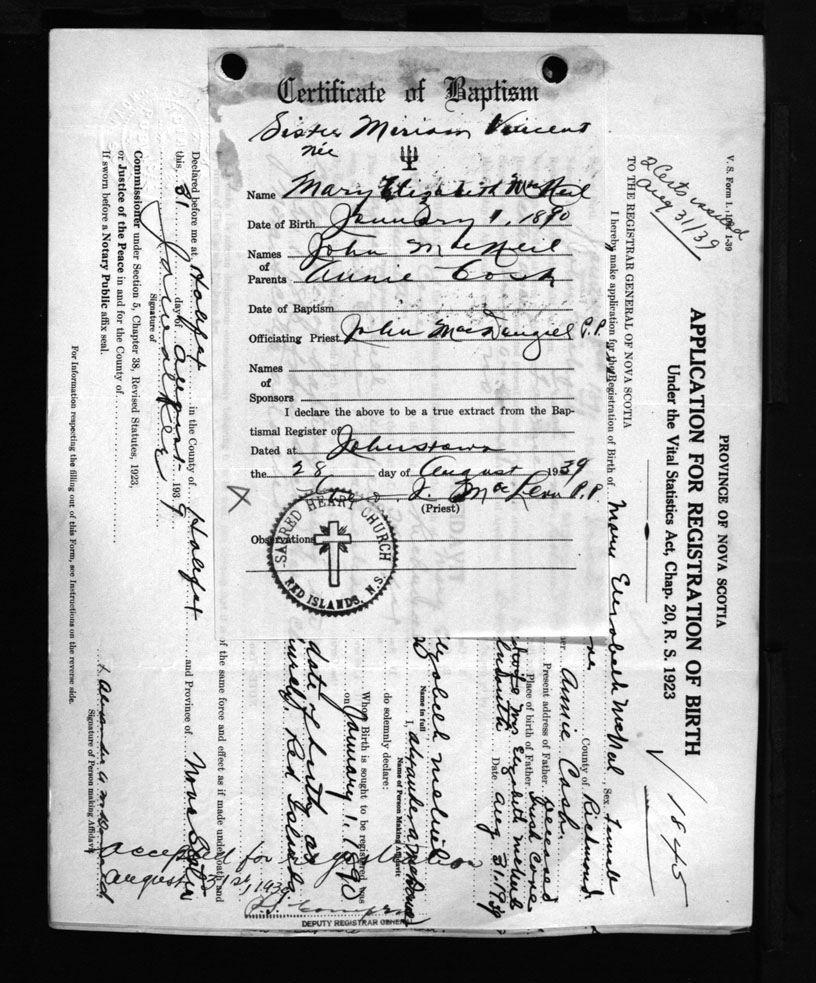 Certificate of Baptism
Sister Miriam Vincent
née
Name Mary Elizabeth McNeil
Date of Birth January 1, 1890
Names of Parents John McNeil
Annie Cash
Date of Baptism
Officiating Priest John MacDougall P.P.
Names of Sponsors
I declare the above to be a true extract from the Bap-
tismal Register of
Dated at Johnstown
the 28 day of August 1939
J. MacLean P.P.
(Priest)
Observations
SACRED HEART CHURCH
RED ISLANDS, N.S.
V. S. Form 1.
2 Certs issued
Aug 31/39
PROVINCE OF NOVA SCOTIA
APPLICATION FOR REGISTRATION OF BIRTH
Under the Vital Statistics Act, Chap. 20, R. S. 1923
1845
TO THE REGISTRAR GENERAL OF NOVA SCOTIA
I hereby make application for the Registration of Birth of Mary Elizabeth McNeil Sex Female
County of Richmond
Annie Cash.
Present address of Father Deceased
Place of birth of Father Cove
Mrs Elizabeth
Date Aug 31. 1939
Name in full
I, Alexander
Name of Person Making Affidavit
do solemnly declare:
Whose Birth is sought to be registered was
on January 1. 1890
date of birth as
Red Islands
of the same force and effect as if made under oath and
Declared before me at Halifax in the County of Halifax and Province of Nova Scotia
this 31 day of August 1939
Signature of
Commissioner under Section 5, Chapter 38, Revised Statutes, 1923,
or Justice of the Peace in and for the County of
If sworn before a Notary Public affix seal.
Signature of Person making Affidavit
For Information respecting the filling out of this Form, see Instructions on the reverse side.
Accepted for registration
August 31st, 1939
DEPUTY REGISTRAR GENERAL